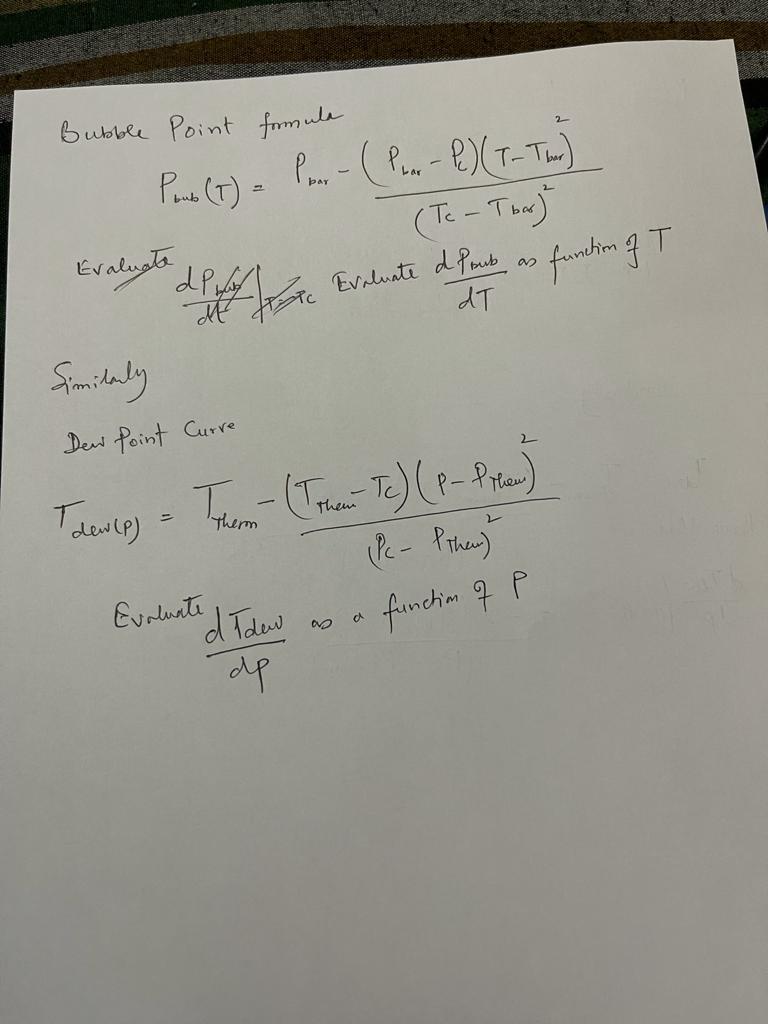 Bubble Point formula
P_bub(T) = P_bar - (P_bar - P_c)(T - T_bar)^2 / (T_c - T_bar)^2
Evaluate dP_bub/dt | T=Tc Evaluate dP_bub/dT as function of T
Similarly
Dew Point Curve
T_dew(P) = T_Therm - (T_Therm - T_c)(P - P_Therm)^2 / (P_c - P_Therm)^2
Evaluate dT_dew/dp as a function of P